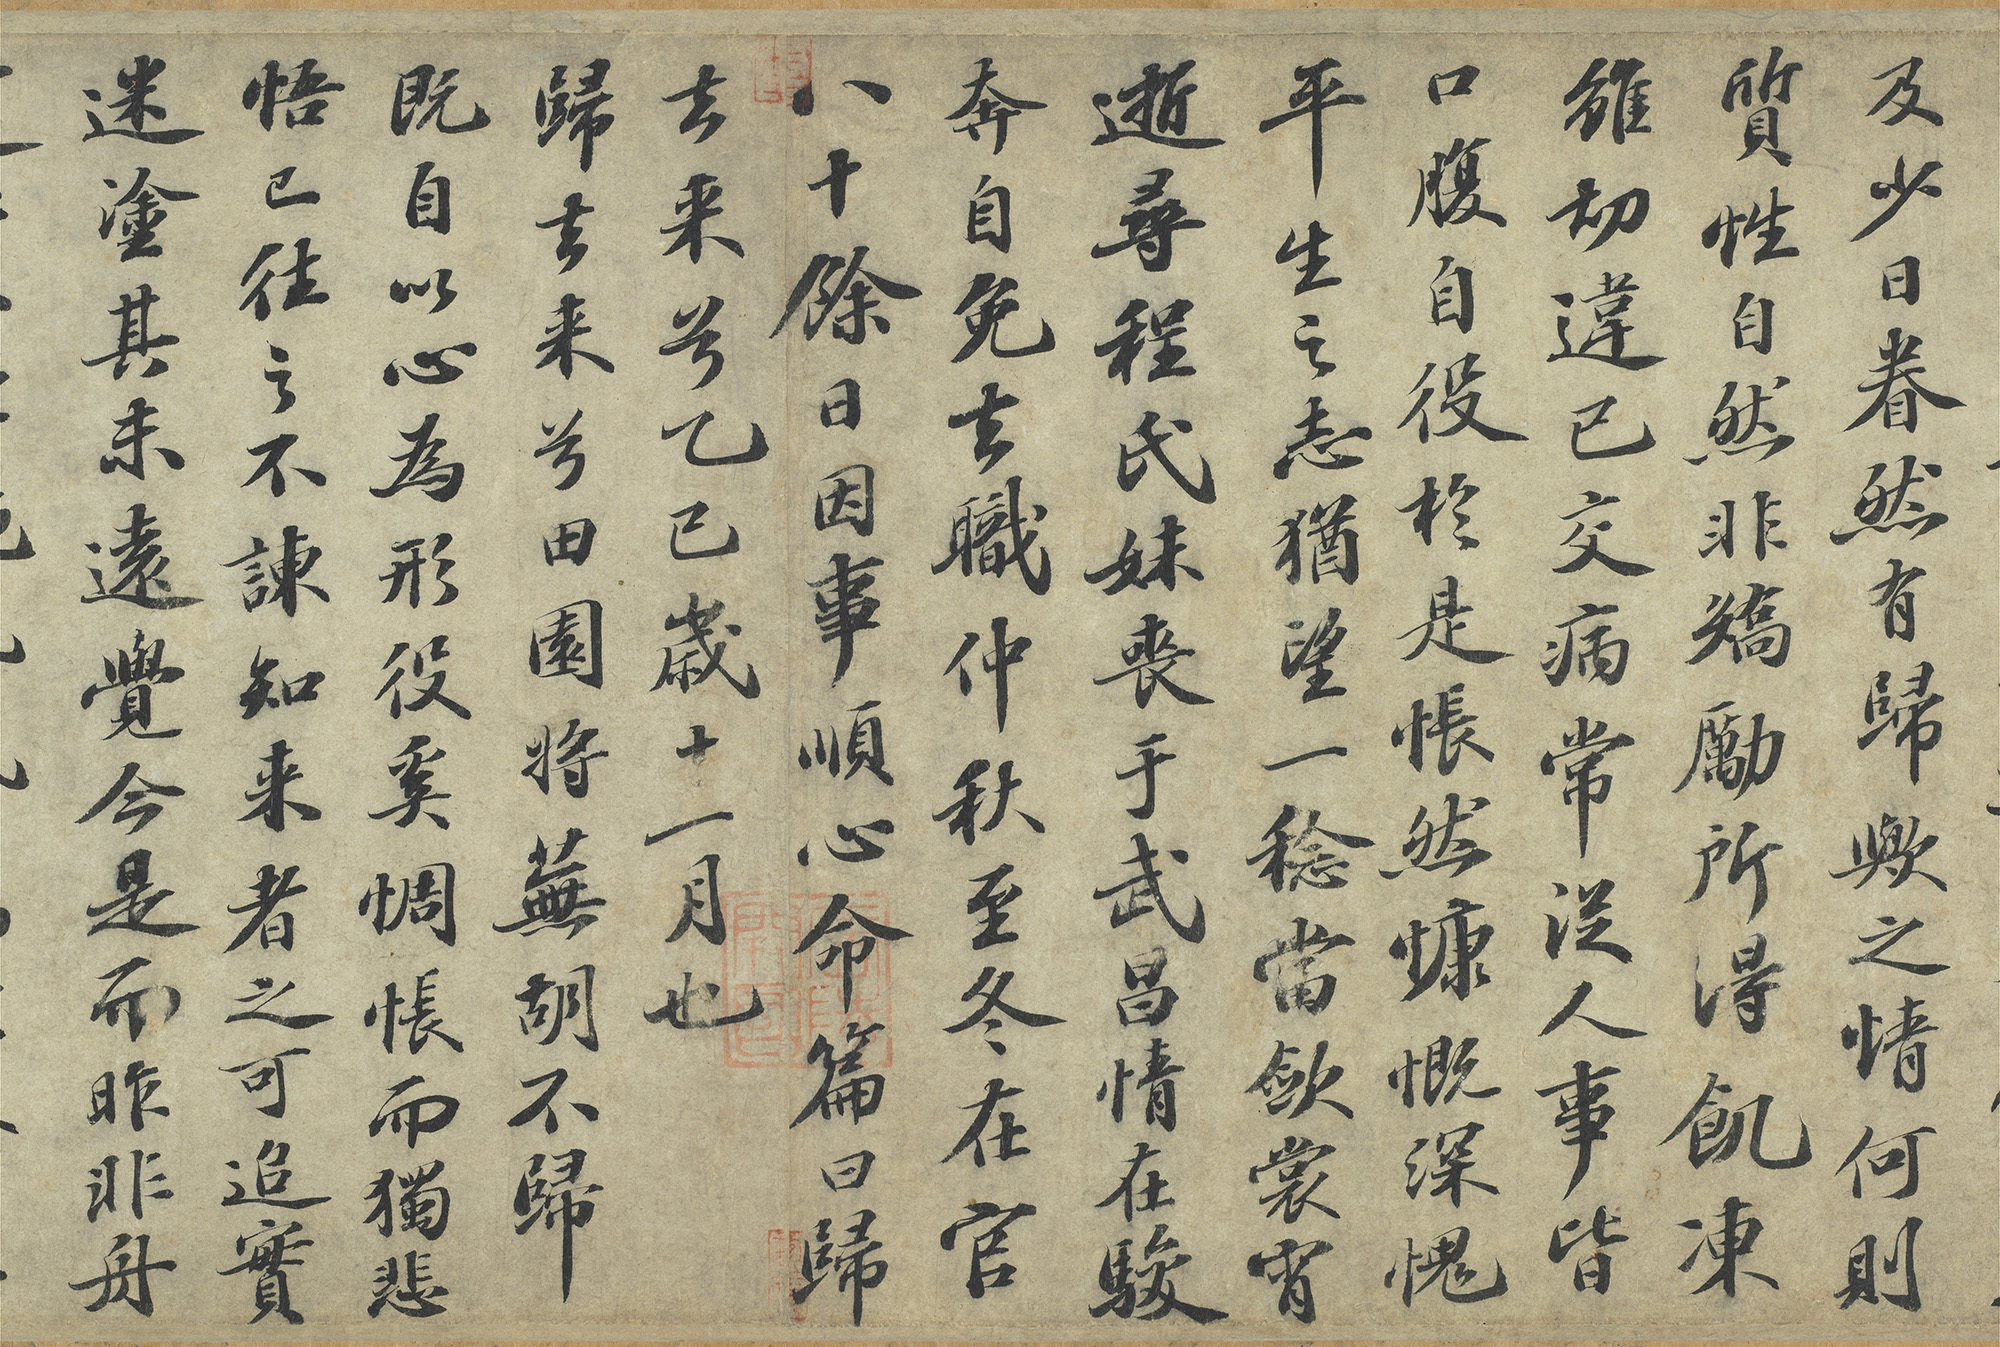 及少日眷然有歸歟之情何則
質性自然非矯勵所得飢凍
雖切違已交病常從人事皆
口腹自役於是悵然慷慨深愧
平生之志猶望一稔當斂裳宵
逝尋程氏妹喪于武昌情在駿
奔自免去職仲秋至冬在官
八十餘日因事順心命篇曰歸
去来兮乙巳歲十一月也
歸去来兮田園將蕪胡不歸
既自以心為形役奚惆悵而獨悲
悟已往之不諫知来者之可追實
迷塗其未遠覺今是而昨非舟